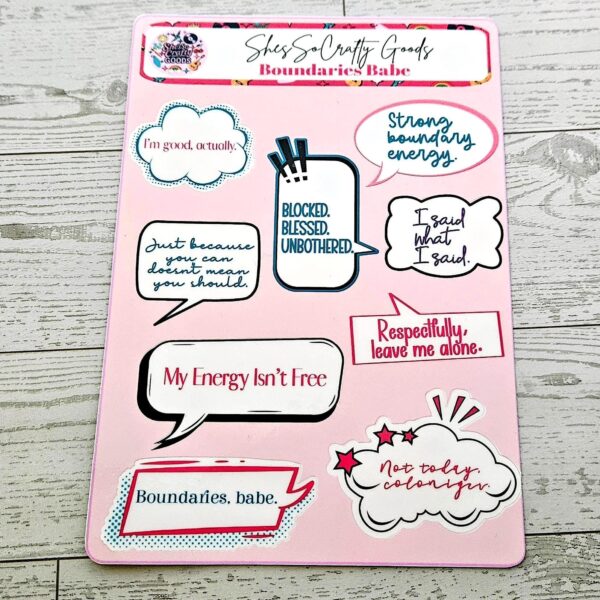 She's So
Crafty
GOODS
ShesSoCrafty Goods
Boundaries Babe
I'm good, actually.
Strong
boundary
energy.
BLOCKED.
BLESSED.
UNBOTHERED.
I said
what
I said.
Just because
you can
doesnt mean
you should.
Respectfully,
leave me alone.
My Energy Isn't Free
Not today,
colonizer.
Boundaries, babe.